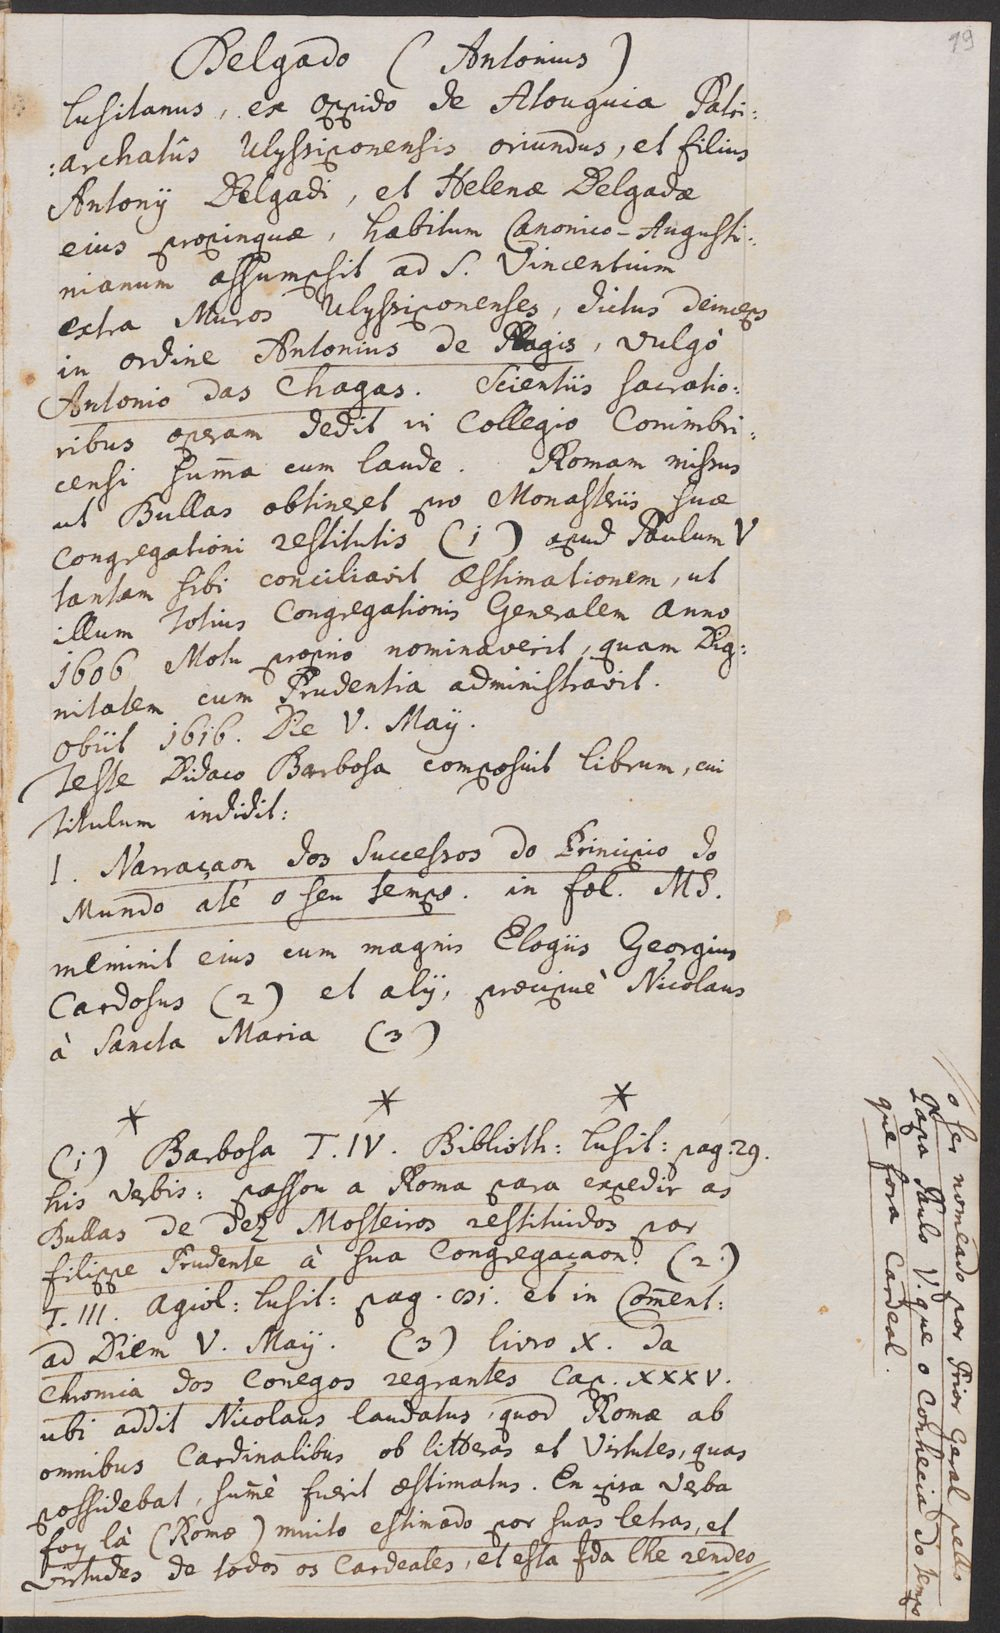 19
Delgado ( Antonius )
Lusitanus, ex oppido de Atouguia Patri:
:archatûs Ulyssiponensis oriundus, et filius
Antonij Delgadi, et Helenæ Delgadæ
eius propinquæ, habitum Canonico-Augusti:
nianum assumpsit ad S. Vincentium
extra Muros Ulyssiponenses, dictus deinceps
in ordine Antonius de Plagis, vulgò
Antonio das Chagas. Scientiis sacratio:
ribus operam dedit in Collegio Conimbri:
censi sum̄a cum laude. Romam missus
ut Bullas obtineret pro Monasteriis suæ
Congregationi restitutis (1) apud Paulum V
tantam sibi conciliavit æstimationem, ut
illum totius Congregationis Generalem anno
1606 Motu proprio nominaverit, quam Dig:
nitatem cum Prudentia administravit.
Obiit 1616. Die V. Maij.
Teste Didaco Barbosa composuit librum, cui
titulum indidit:
1. Narraçaon dos Successos do Principio do
Mundo até o seu tempo. in fol. MS.
meminit eius cum magnis Elogiis Georgius
Cardosus (2) et alij, præcipuè Nicolaus
à Sancta Maria (3)
* * *
(1) Barbosa T. IV. Biblioth: Lusit: pag: 29.
his verbis: passou a Roma para expedir as
Bullas de dez Mosteiros restituidos por
filippe Prudente à sua Congregaçaon. (2.)
T. III. Agiol: Lusit: pag. 81. et in Com̄ent:
ad Diem V. Maij. (3) livro X. da
Chronica dos Conegos regrantes Cap. XXXV.
ubi addit Nicolaus laudatus, quod Romæ ab
omnibus Cardinalibus ob litteras et Virtutes, quas
possidebat, sum̄è fuerit æstimatus. En ipsa verba
foy là (Romæ) muito estimado por suas letras, et
virtudes de todos os Cardeales, et esta lhe rendeo //
// o ser nomeado por Prior Geral pello
Papa Paulo V. que o conhecia do tempo
que fora Cardeal.